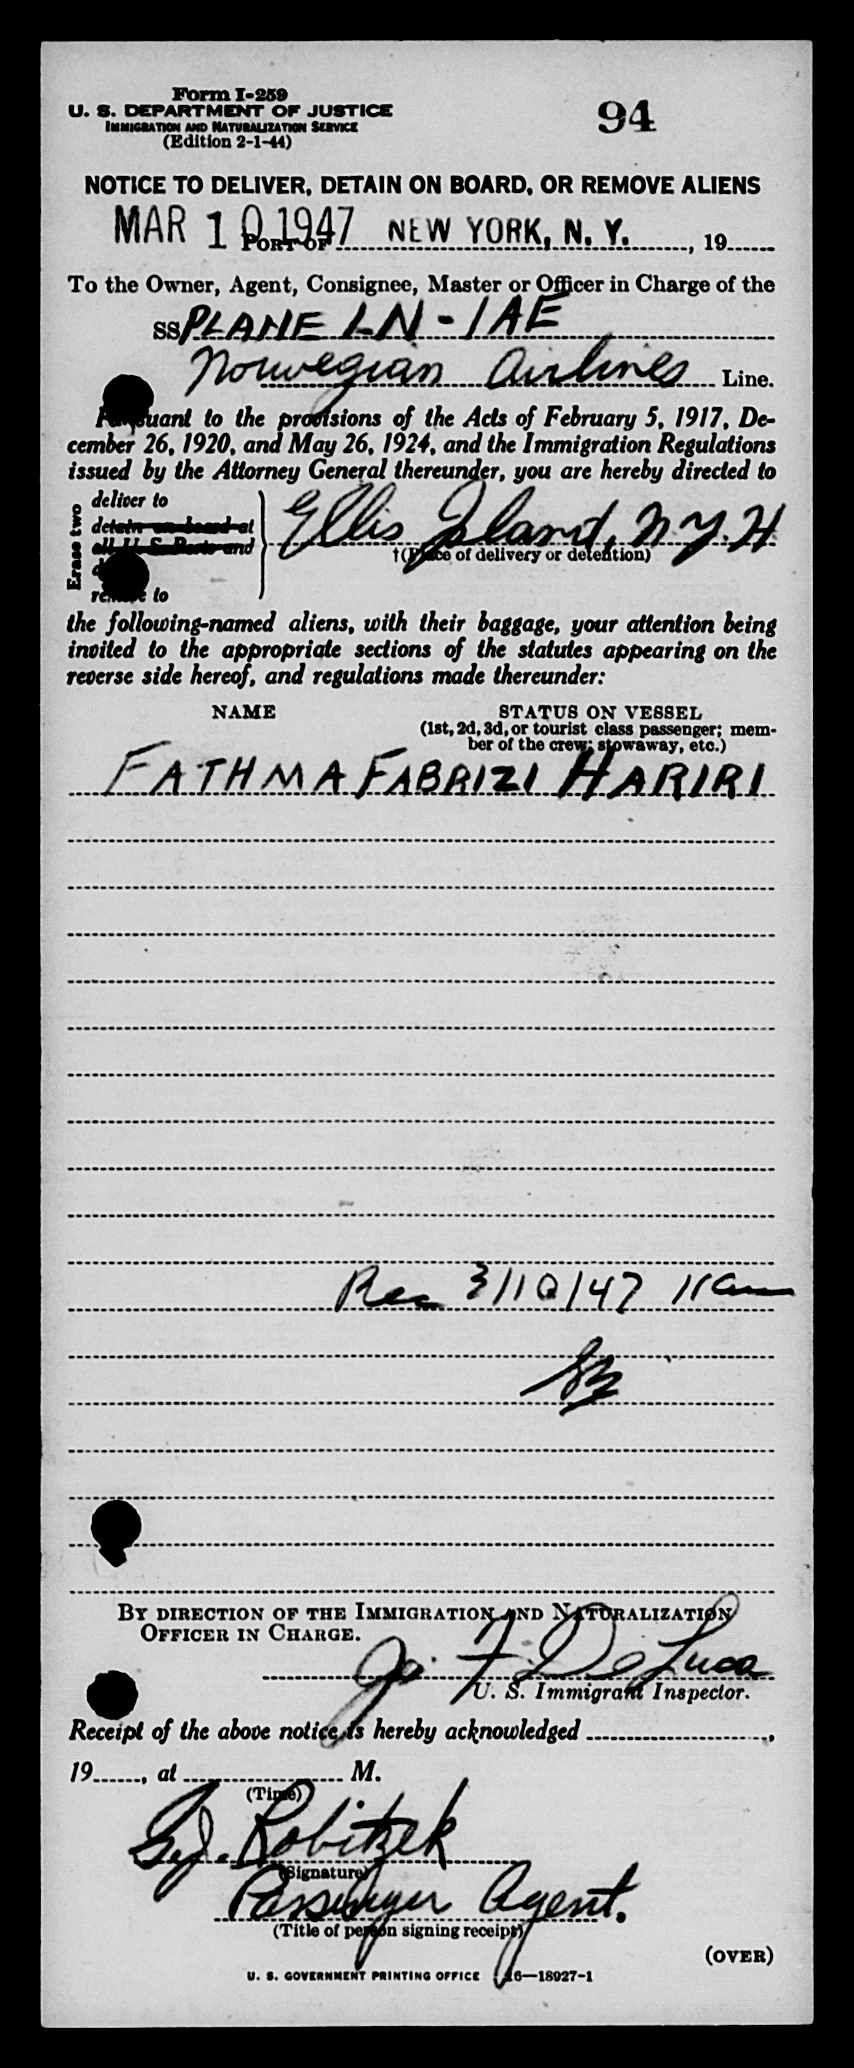 Form I-259
U. S. DEPARTMENT OF JUSTICE
IMMIGRATION AND NATURALIZATION SERVICE
(Edition 2-1-44)
94
NOTICE TO DELIVER, DETAIN ON BOARD, OR REMOVE ALIENS
MAR 10 1947 PORT OF NEW YORK, N. Y. , 19
To the Owner, Agent, Consignee, Master or Officer in Charge of the
SS PLANE LN-IAE
Norwegian Airlines Line.
Pursuant to the provisions of the Acts of February 5, 1917, De-
cember 26, 1920, and May 26, 1924, and the Immigration Regulations
issued by the Attorney General thereunder, you are hereby directed to
Erase two
deliver to
detain on board at
all U. S. Ports and
remove to
Ellis Island, N.Y.H
†(Place of delivery or detention)
the following-named aliens, with their baggage, your attention being
invited to the appropriate sections of the statutes appearing on the
reverse side hereof, and regulations made thereunder:
NAME
STATUS ON VESSEL
(1st, 2d, 3d, or tourist class passenger; mem-
ber of the crew; stowaway, etc.)
FATHMA FABRIZI HARIRI
Rec 3/10/47 11am
BY DIRECTION OF THE IMMIGRATION AND NATURALIZATION
OFFICER IN CHARGE.
Jo. F. DeLuca
U. S. Immigrant Inspector.
Receipt of the above notice is hereby acknowledged ,
19 , at M.
(Time)
G.J. Robitzek
(Signature)
Passenger Agent.
(Title of person signing receipt)
(OVER)
U. S. GOVERNMENT PRINTING OFFICE 16—18927-1